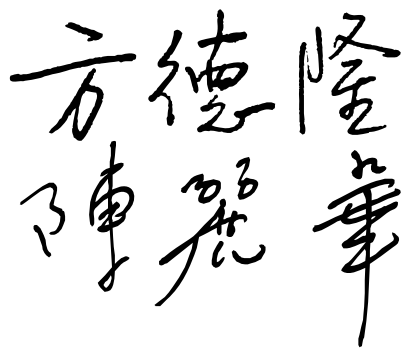 方德隆
陳麗華